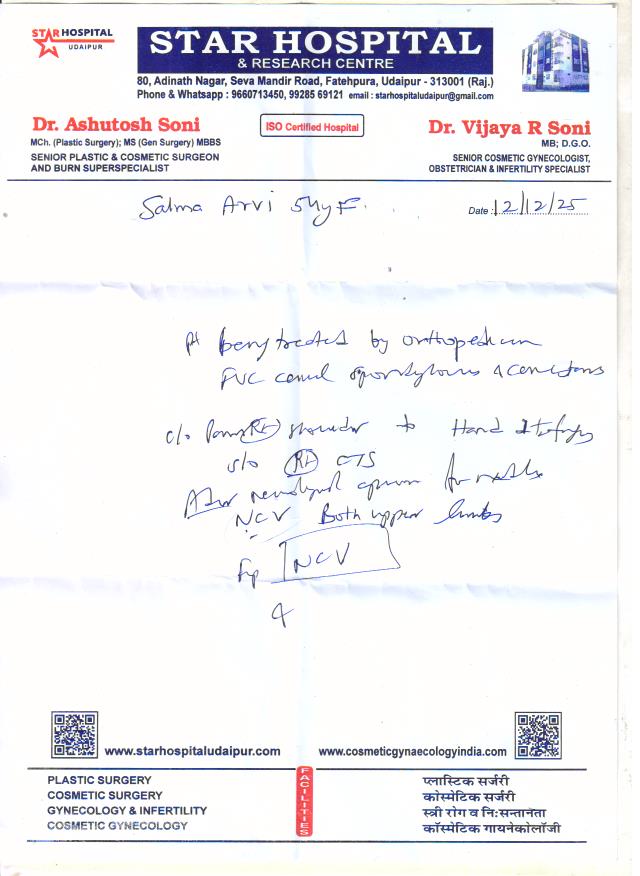 STAR HOSPITAL
UDAIPUR
STAR HOSPITAL
& RESEARCH CENTRE
80, Adinath Nagar, Seva Mandir Road, Fatehpura, Udaipur - 313001 (Raj.)
Phone & Whatsapp : 9660713450, 99285 69121 email : starhospitaludaipur@gmail.com
Dr. Ashutosh Soni
MCh. (Plastic Surgery); MS (Gen Surgery) MBBS
SENIOR PLASTIC & COSMETIC SURGEON
AND BURN SUPERSPECIALIST
ISO Certified Hospital
Dr. Vijaya R Soni
MB; D.G.O.
SENIOR COSMETIC GYNECOLOGIST,
OBSTETRICIAN & INFERTILITY SPECIALIST
Salma Arvi 54y F.
Date : 12/12/25
pt being treated by orthopedician
c/o Pain Rt shoulder to Hand
s/o Rt CTS
opinion for
NCV Both upper limbs
NCV
www.starhospitaludaipur.com
www.cosmeticgynaecologyindia.com
PLASTIC SURGERY
COSMETIC SURGERY
GYNECOLOGY & INFERTILITY
COSMETIC GYNECOLOGY
FACILITIES
प्लास्टिक सर्जरी
कोस्मेटिक सर्जरी
स्त्री रोग व नि:सन्तानता
कॉस्मेटिक गायनेकोलॉजी